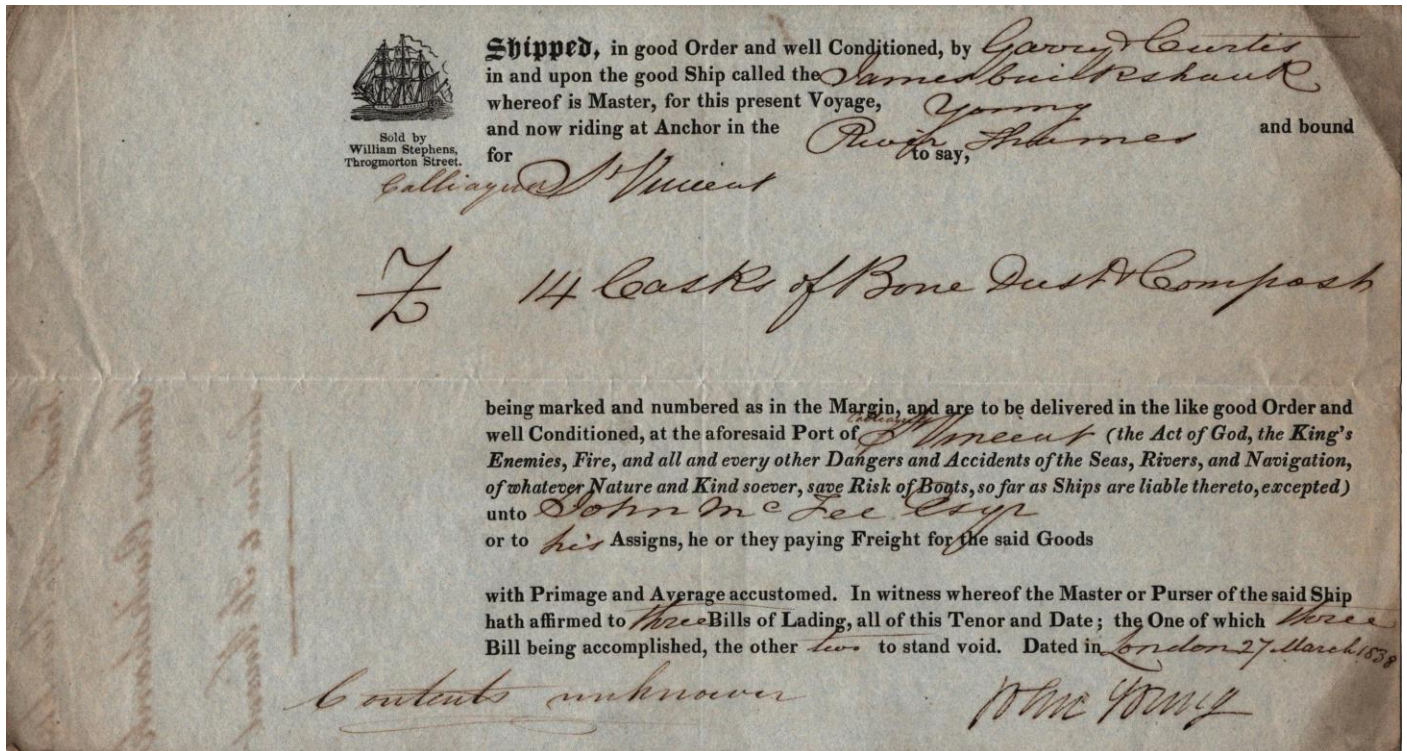 Shipped, in good Order and well Conditioned, by Garry & Curtis
in and upon the good Ship called the James Cruikshank
whereof is Master, for this present Voyage, Young
and now riding at Anchor in the River Thames and bound
for to say,
Calliaqua St Vincent
Sold by
William Stephens,
Throgmorton Street.
14 Casks of Bone Dust & Compost
being marked and numbered as in the Margin, and are to be delivered in the like good Order and
Calliaqua
well Conditioned, at the aforesaid Port of St Vincent (the Act of God, the King's
Enemies, Fire, and all and every other Dangers and Accidents of the Seas, Rivers, and Navigation,
of whatever Nature and Kind soever, save Risk of Boats, so far as Ships are liable thereto, excepted)
unto John Mc Fee Esqr
or to his Assigns, he or they paying Freight for the said Goods
with Primage and Average accustomed. In witness whereof the Master or Purser of the said Ship
hath affirmed to three Bills of Lading, all of this Tenor and Date; the One of which three
Bill being accomplished, the other two to stand void. Dated in London 27 March 1838
Contents unknown
John Young